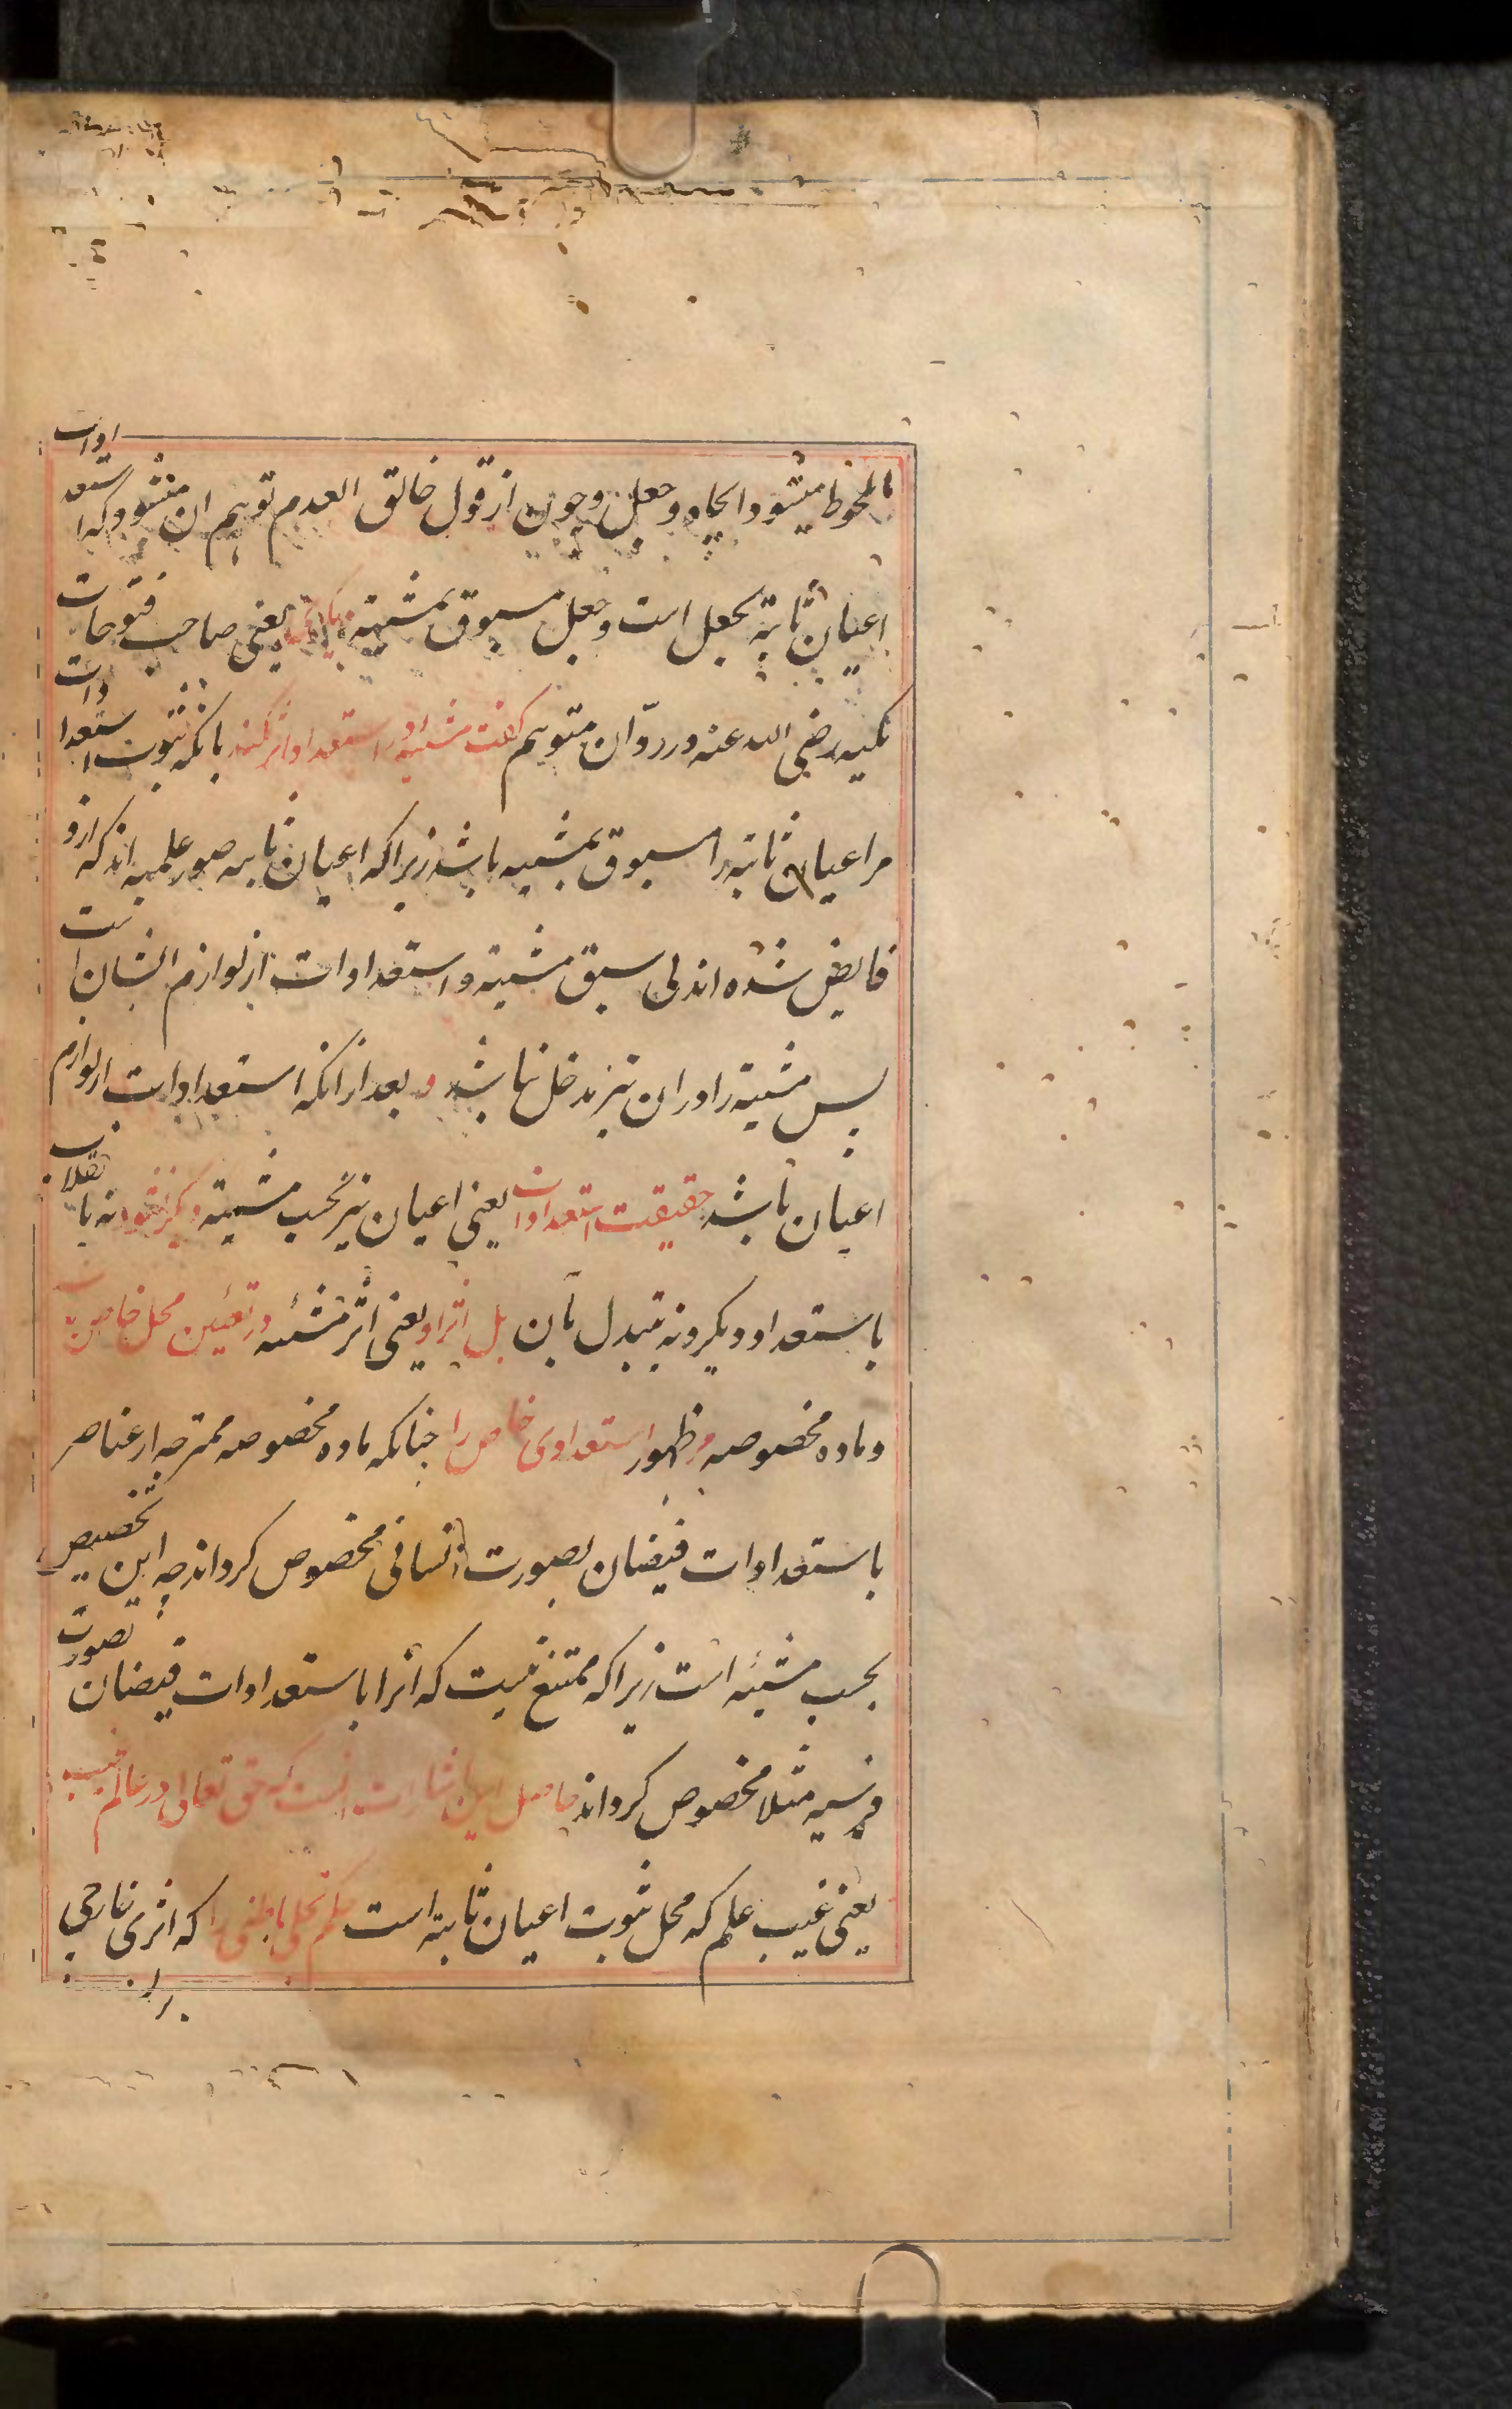 ملحوظ میشود ایجاد و جعل و چون از قول خالق العدم توهم ان میشود که استعدادات
اعیان ثابته بجعل است و جعل مسبوق بمشیة یعنی صاحب فتوحات
مکیه رضی الله عنه در ردّ آن متوهم گفت مشیة در استعداد اثر نکند بانکه ثبوت استعدادات
مر اعیان ثابته را مسبوق بمشیه باشد زیرا که اعیان ثابته صور علمیه اند که ازو
فایض شده اند بی سبق مشیته و استعدادات از لوازم ایشان است
پس مشیته را در ان نیز مدخل نباشد و بعد از انکه استعدادات از لوازم
اعیان باشد حقیقت استعدادات یعنی اعیان نیز بحسب مشیته دیگر نشود نه بانقلاب
با ستعداد دیگر و نه بتبدل بآن بل اثر او یعنی اثر مشئه در تعیین محل خاص است
و ماده مخصوصه و ظهور استعدادی خاص را چنانکه ماده مخصوصه ممتزجه از عناصر
باستعدادات فیضان بصورت انسانی مخصوص کرداند چه این تخصیص
بحسب مشیئه است زیرا که ممتنع نیست که انرا باستعدادات فیضان بصورت
فرسیه مثلا مخصوص کرداند حاصل این اشارت انست که حق تعالی در عالم غیب
یعنی غیب علم که محل ثبوت اعیان ثابته است حکم تجلی باطنی را که اثری خارجی
بران